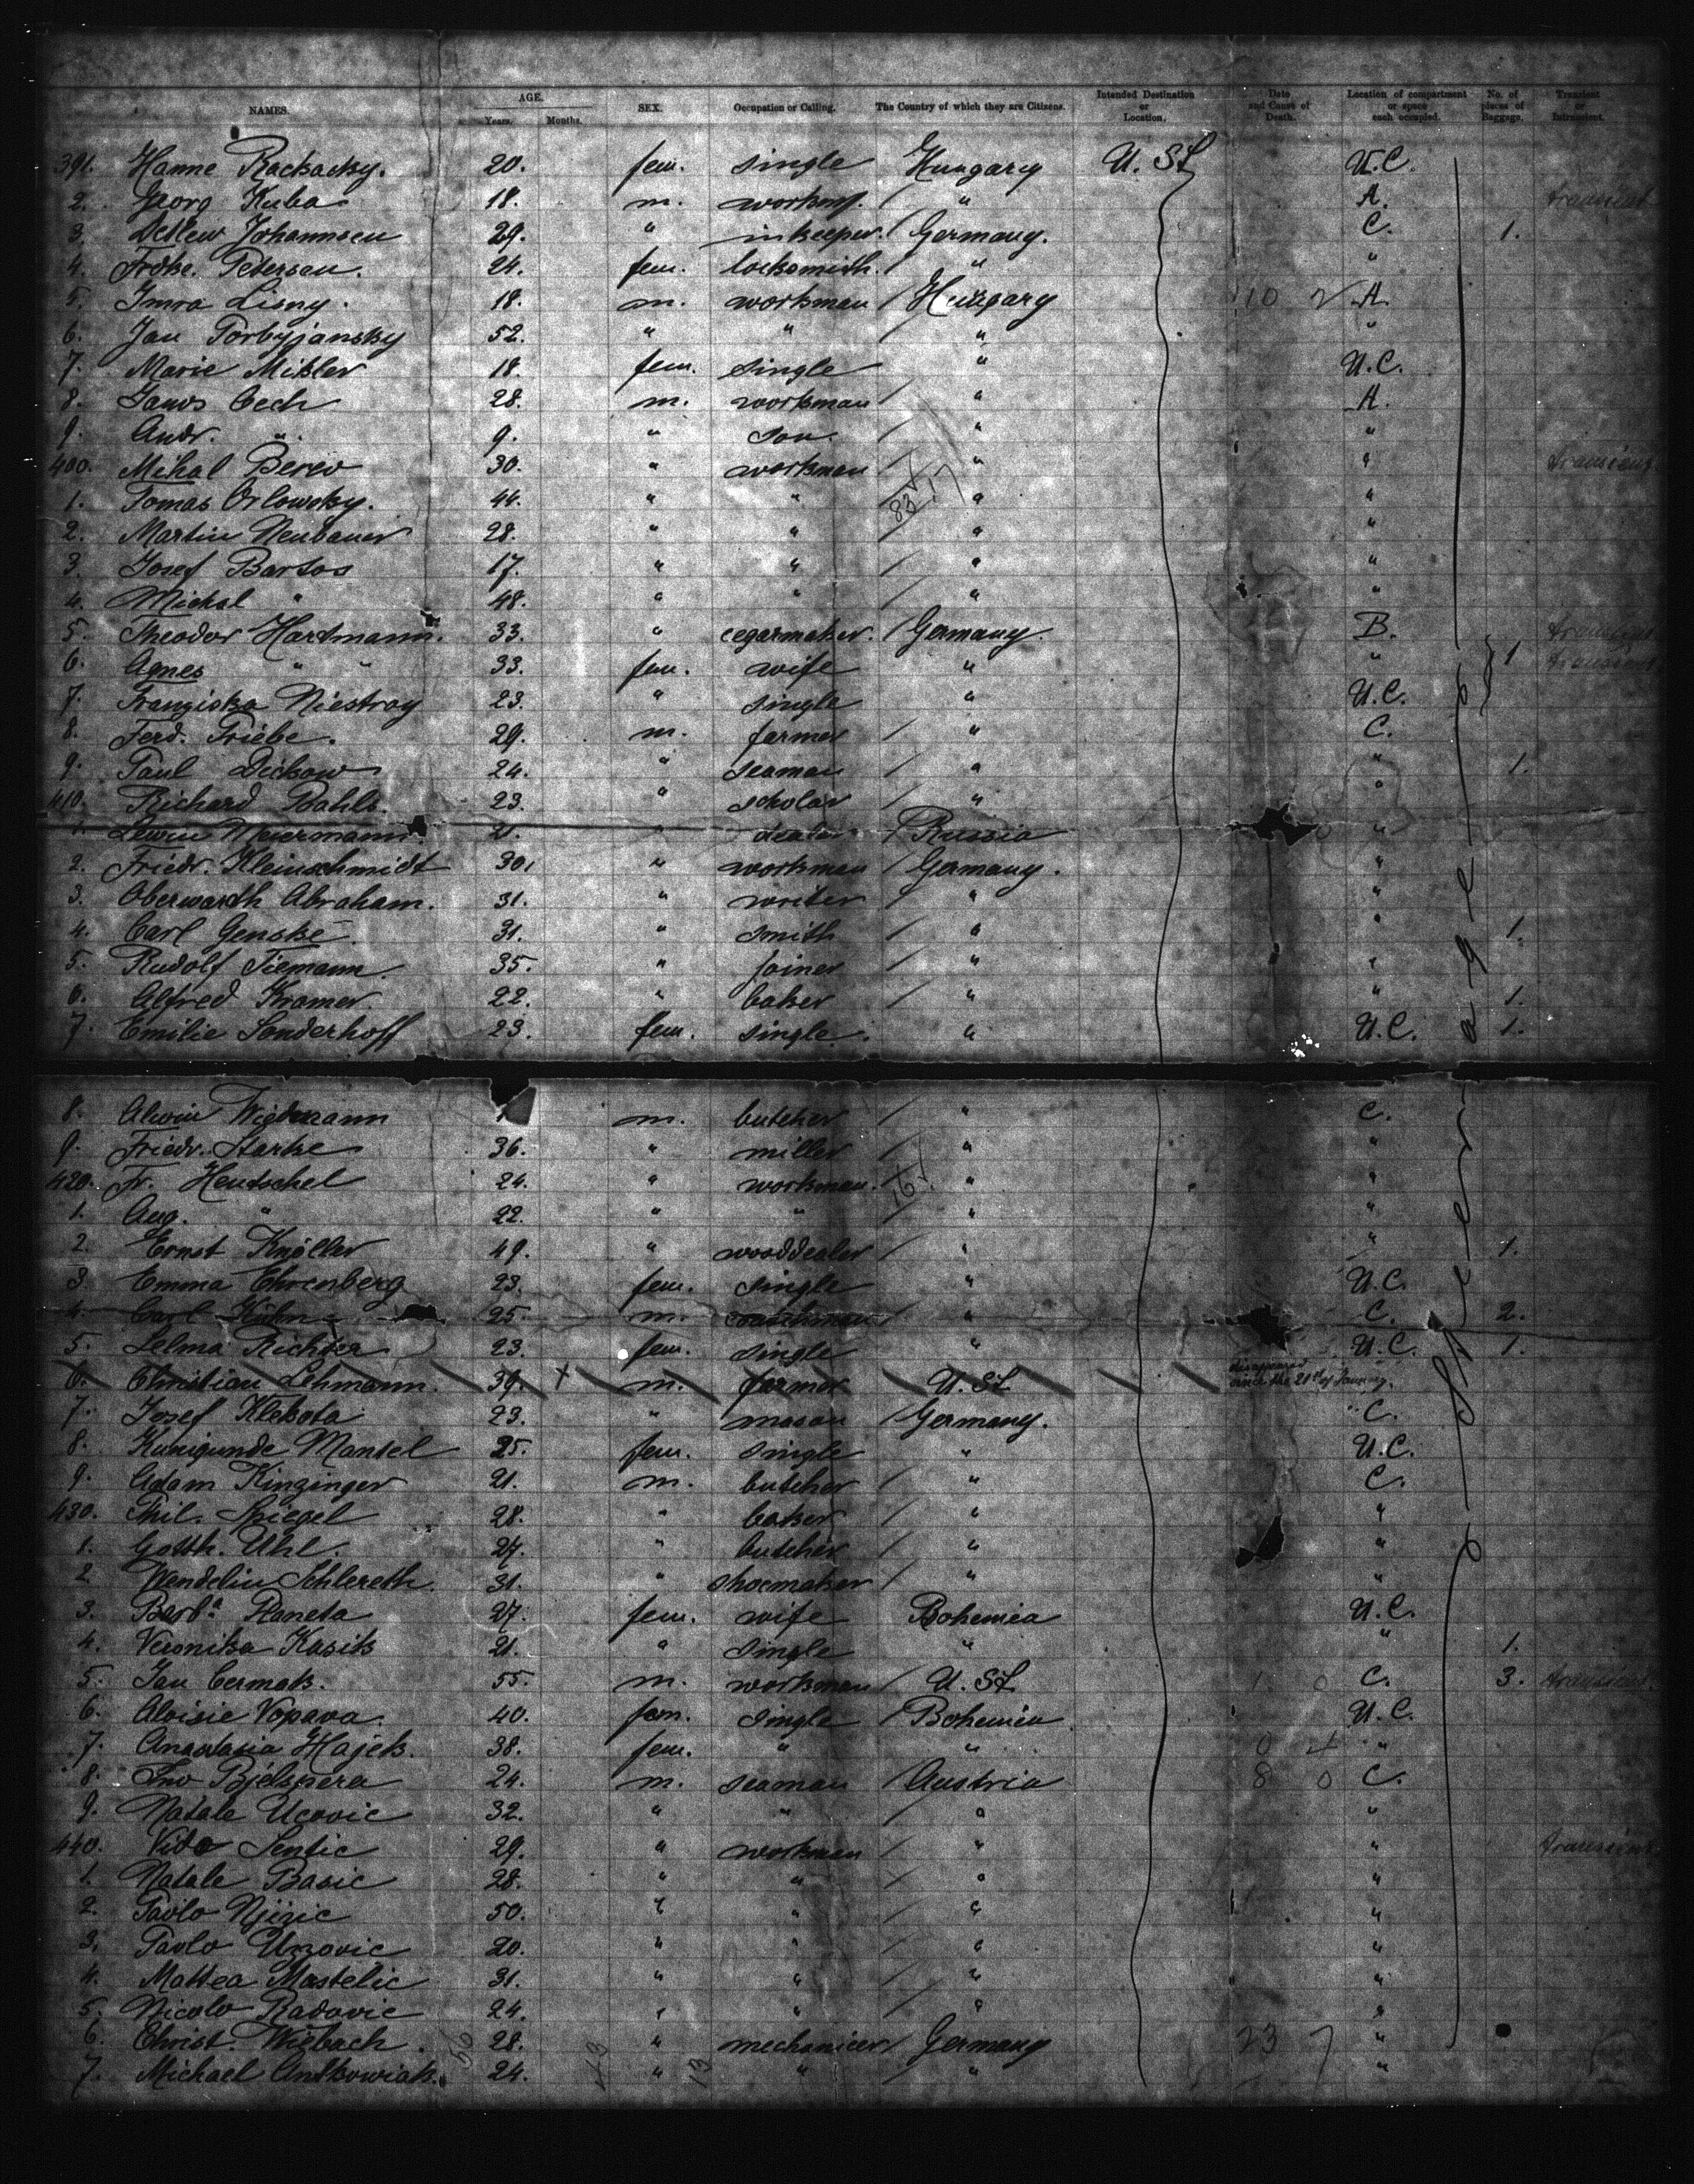 NAMES. AGE. Years. Months. SEX. Occupation or Calling. The Country of which they are Citizens. Intended Destination or Location. Date and Cause of Death. Location of compartment or space each occupied. No. of pieces of Baggage. Transient or Intransient.
391. Hanne Rachachy. 20. fem. single Hungary U. St. U.C.
2. Georg Kuba 18. m. workmn. / " A. transient
3. Detlew Johannsen 29. " inkeeper. / Germany. C. 1.
4. Frdke. Petersen. 24. fem. locksmith. / " "
5. Imra Lisny. 18. m. workman / Hungary 10 2 A.
6. Jan Porbyjansky 52. " " / " "
7. Marie Mikler 18. fem. single " U.C.
8. Janos Cech 28. m. workman / " A.
9. Andr. " 9. " son. / " "
400. Mihal Berev 30. " workman / " " transient
1. Tomas Orlowsky. 44. " " / " "
2. Martin Neubauer 28. " " / " "
3. Josef Bartos 17. " " / " "
4. Michal " 48. " " / " "
5. Theodor Hartmann. 33. " cegarmaker. / Germany. B. transient
6. Agnes " " 33. fem. wife " " 1 transient
7. Franziska Niestroy 23. " single " U.C.
8. Ferd. Friebe. 29. m. farmer / " C.
9. Paul Dickow 24. " seaman / " " 1.
410. Richard Pahls 23. " scholar / " "
1. Lewin Neuermann. 21. " dealer / Russia "
2. Friedr. Kleinschmidt 30. " workman / Germany. "
3. Oberwarth Abraham. 31. " writer / " "
4. Carl Genske 31. " smith / " " 1.
5. Rudolf Tiemann. 35. " joiner / " "
6. Alfred Kramer 22. " baker / " " 1.
7. Emilie Sonderhoff 23. fem. single. " U.C. 1.
8. Alwin Wiedemann m. butcher / " C.
9. Friedr. Starke 36. " miller / " "
420. Fr. Hentschel 24. " workman. / " "
1. Aug. " 22. " " / " "
2. Ernst Knöller 49. " wooddealer / " " 1.
3. Emma Ehrenberg 23. fem. single " U.C.
4. Carl Kühn 25. m. coachman / " C. 2.
5. Selma Richter 23. fem. single " U.C. 1.
6. Christian Lehmann. 39. m. farmer U. St. disappeared since the 21st of January.
7. Josef Klebota 23. " mason / Germany. " C.
8. Kunigunde Mantel 25. fem. single " U.C.
9. Adam Kinzinger 21. m. butcher / " C.
430. Phil. Spiegel 28. " baker / " "
1. Gotth. Uhl. 27. " butcher / " "
2 Wendelin Schlereth. 31. " shoemaker / " "
3. Barba. Planeta 27. fem. wife Bohemia U.C.
4. Veronika Kasik 21. " single " " 1.
5. Jan Cermak. 55. m. workman / U. St. 1. 0 C. 3. transient.
6. Aloisie Vopava. 40. fem. single / Bohemia U.C.
7. Anastasia Hajek. 38. fem. " " 0 4 "
8. Ino Bjelspera 24. m. seaman / Austria 8 0 C.
9. Natale Ucovic 32. " " / " "
440. Vito Sentic 29. " workman / " " transient
1. Natale Basic 28. " " / " "
2. Pavlo Njiric 50. " " / " "
3. Pavlo Unovic 20. " " / " "
4. Mattea Mastelic 31. " " / " "
5. Nicolo Radovic 24. " " / " "
6. Christ. Wiebach. 28. " mechanicer / Germany 23 7 "
7. Michael Antkowiak. 24. " " / " "